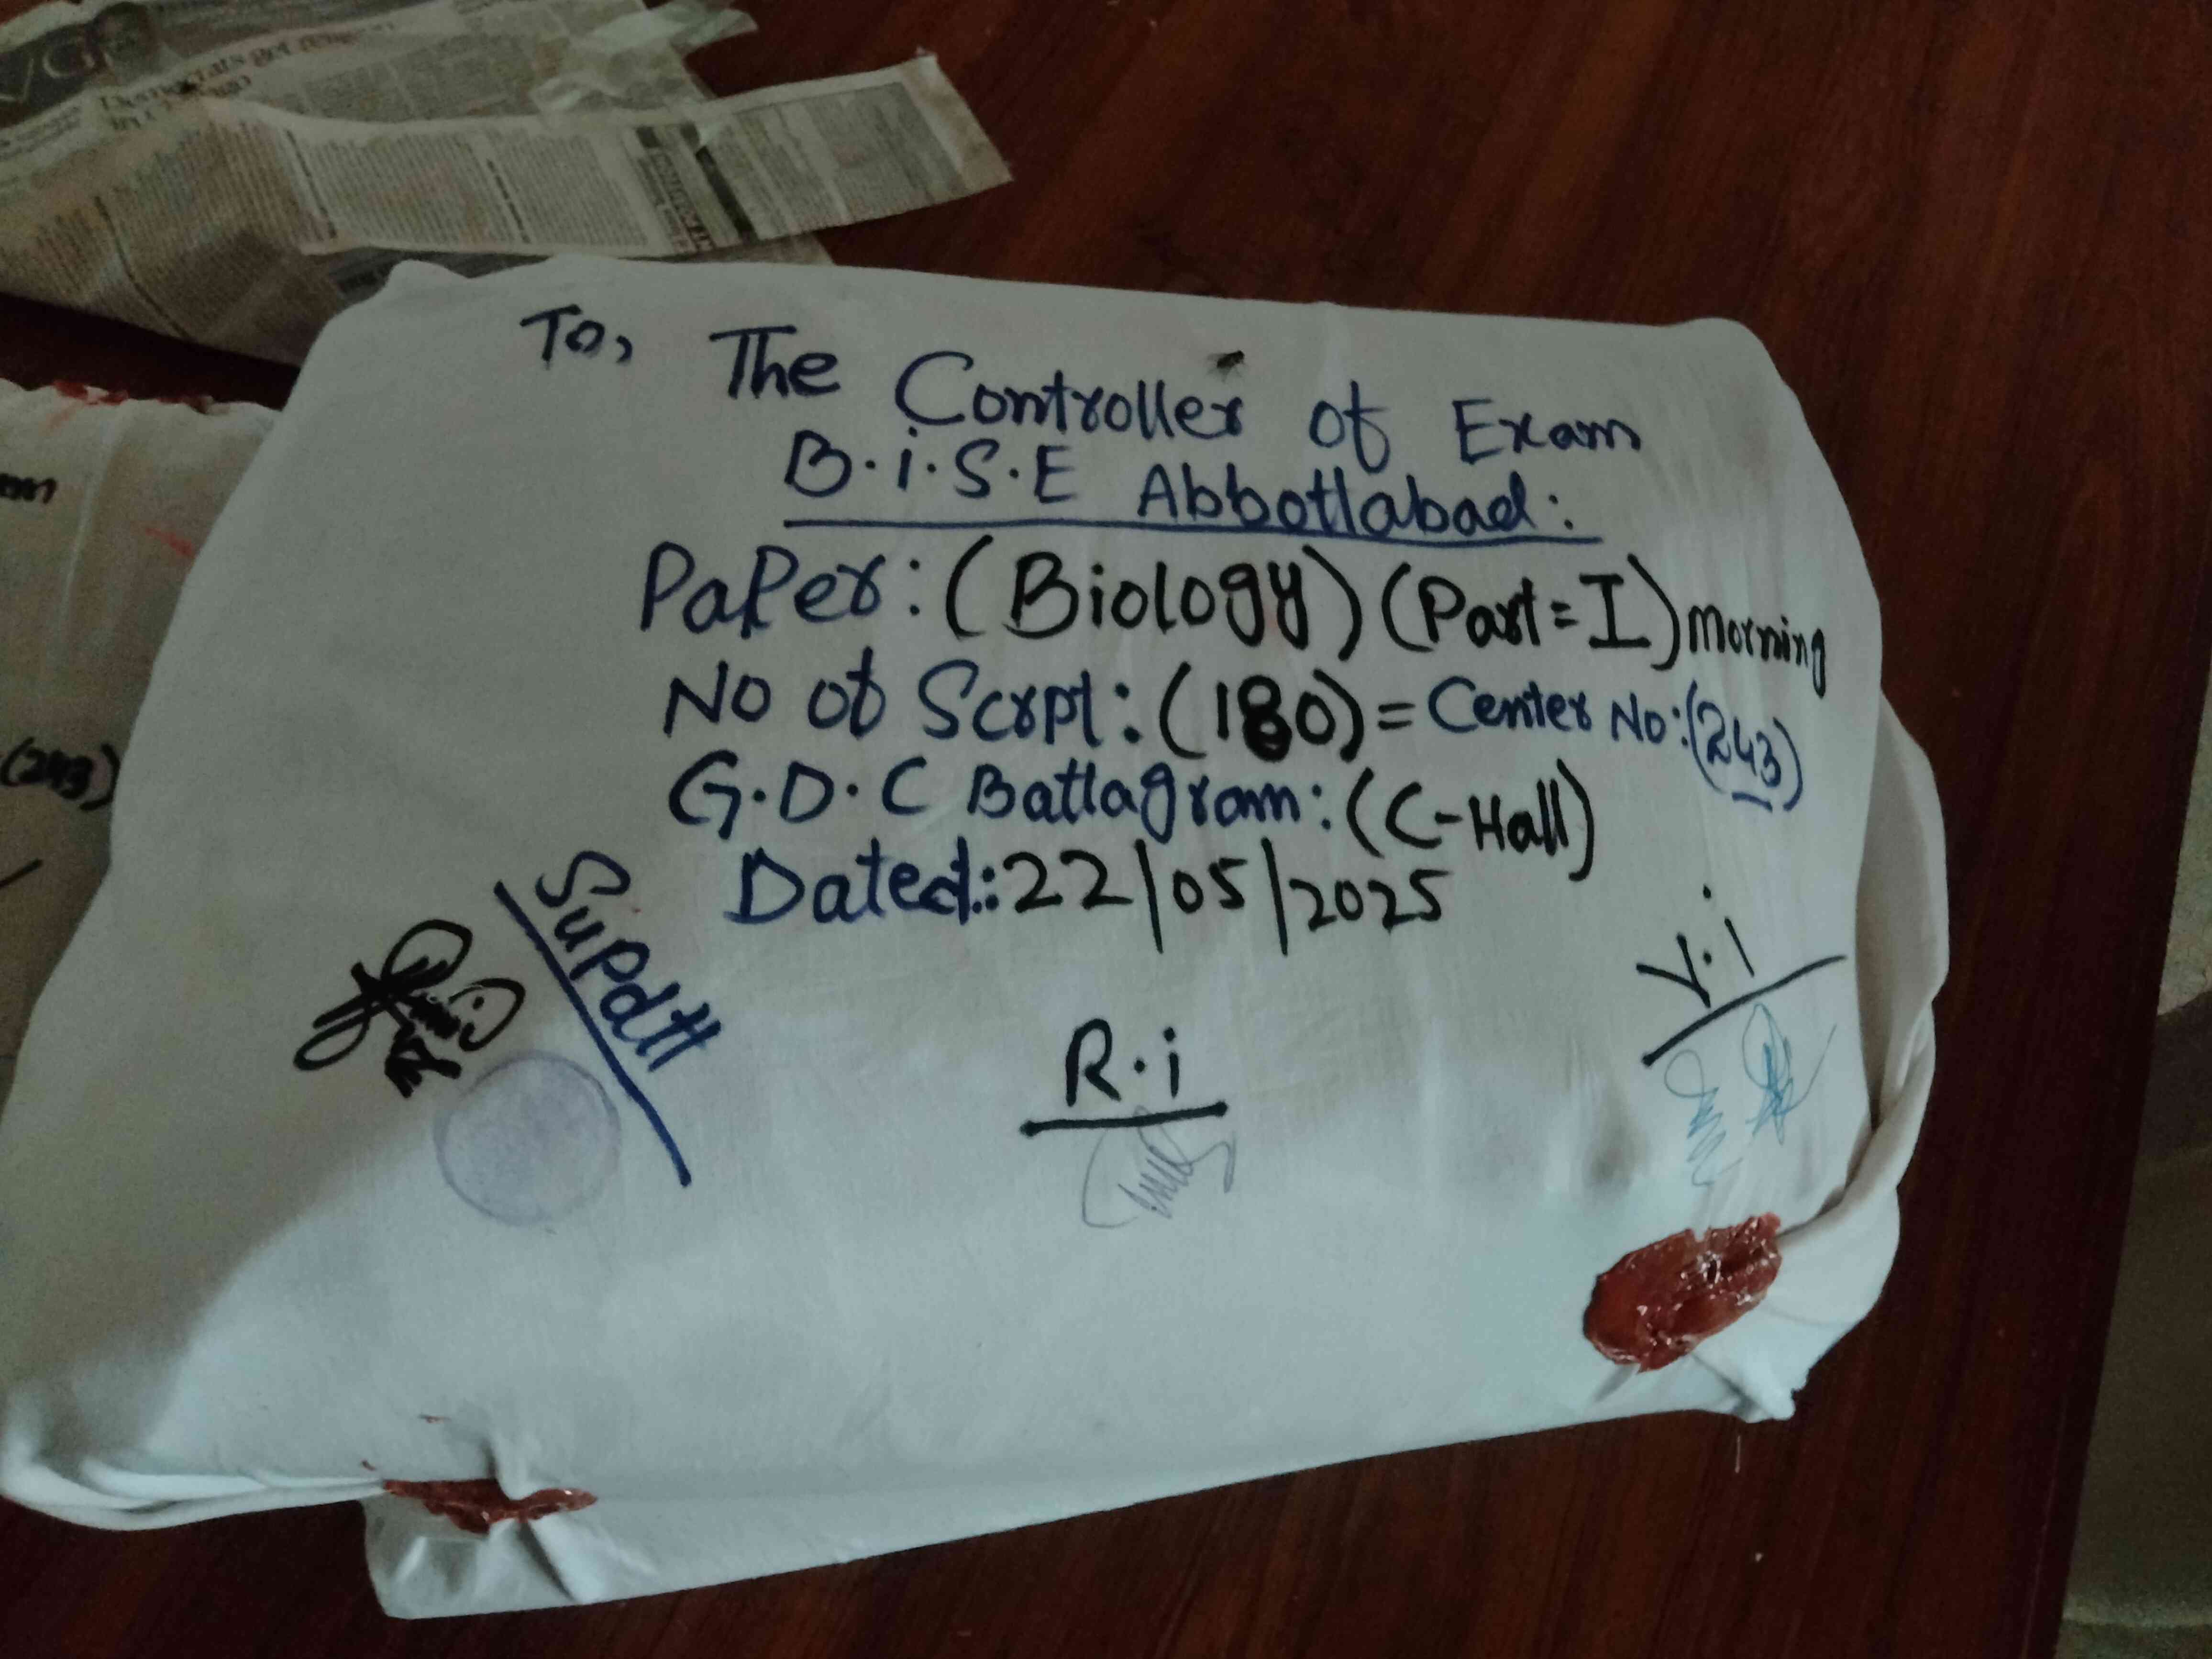 To, The Controller of Exam
B.i.S.E Abbottabad:
PaPer: (Biology) (Part=I) Morning
No of Scrpt: (180) = Center No: (243)
G.D.C Battagram: (C-Hall)
Dated:: 22/05/2025
Supdtt
R.i
V.i
(243)
Democrats get